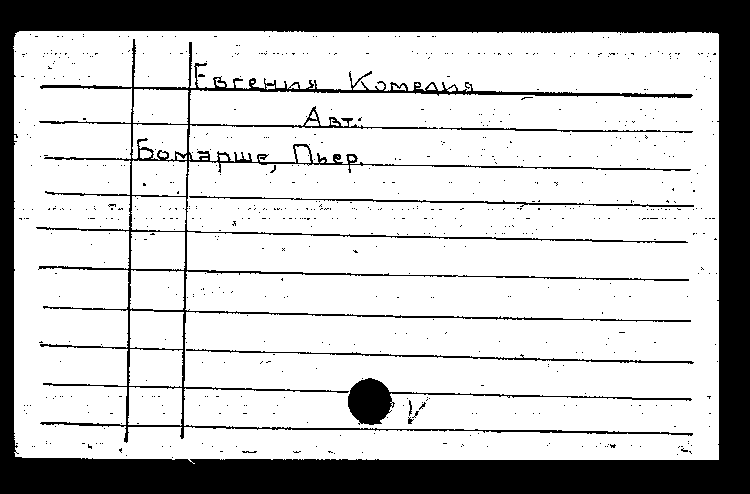 Евгения Комедия
Авт.:
Бомарше, Пьер.
V